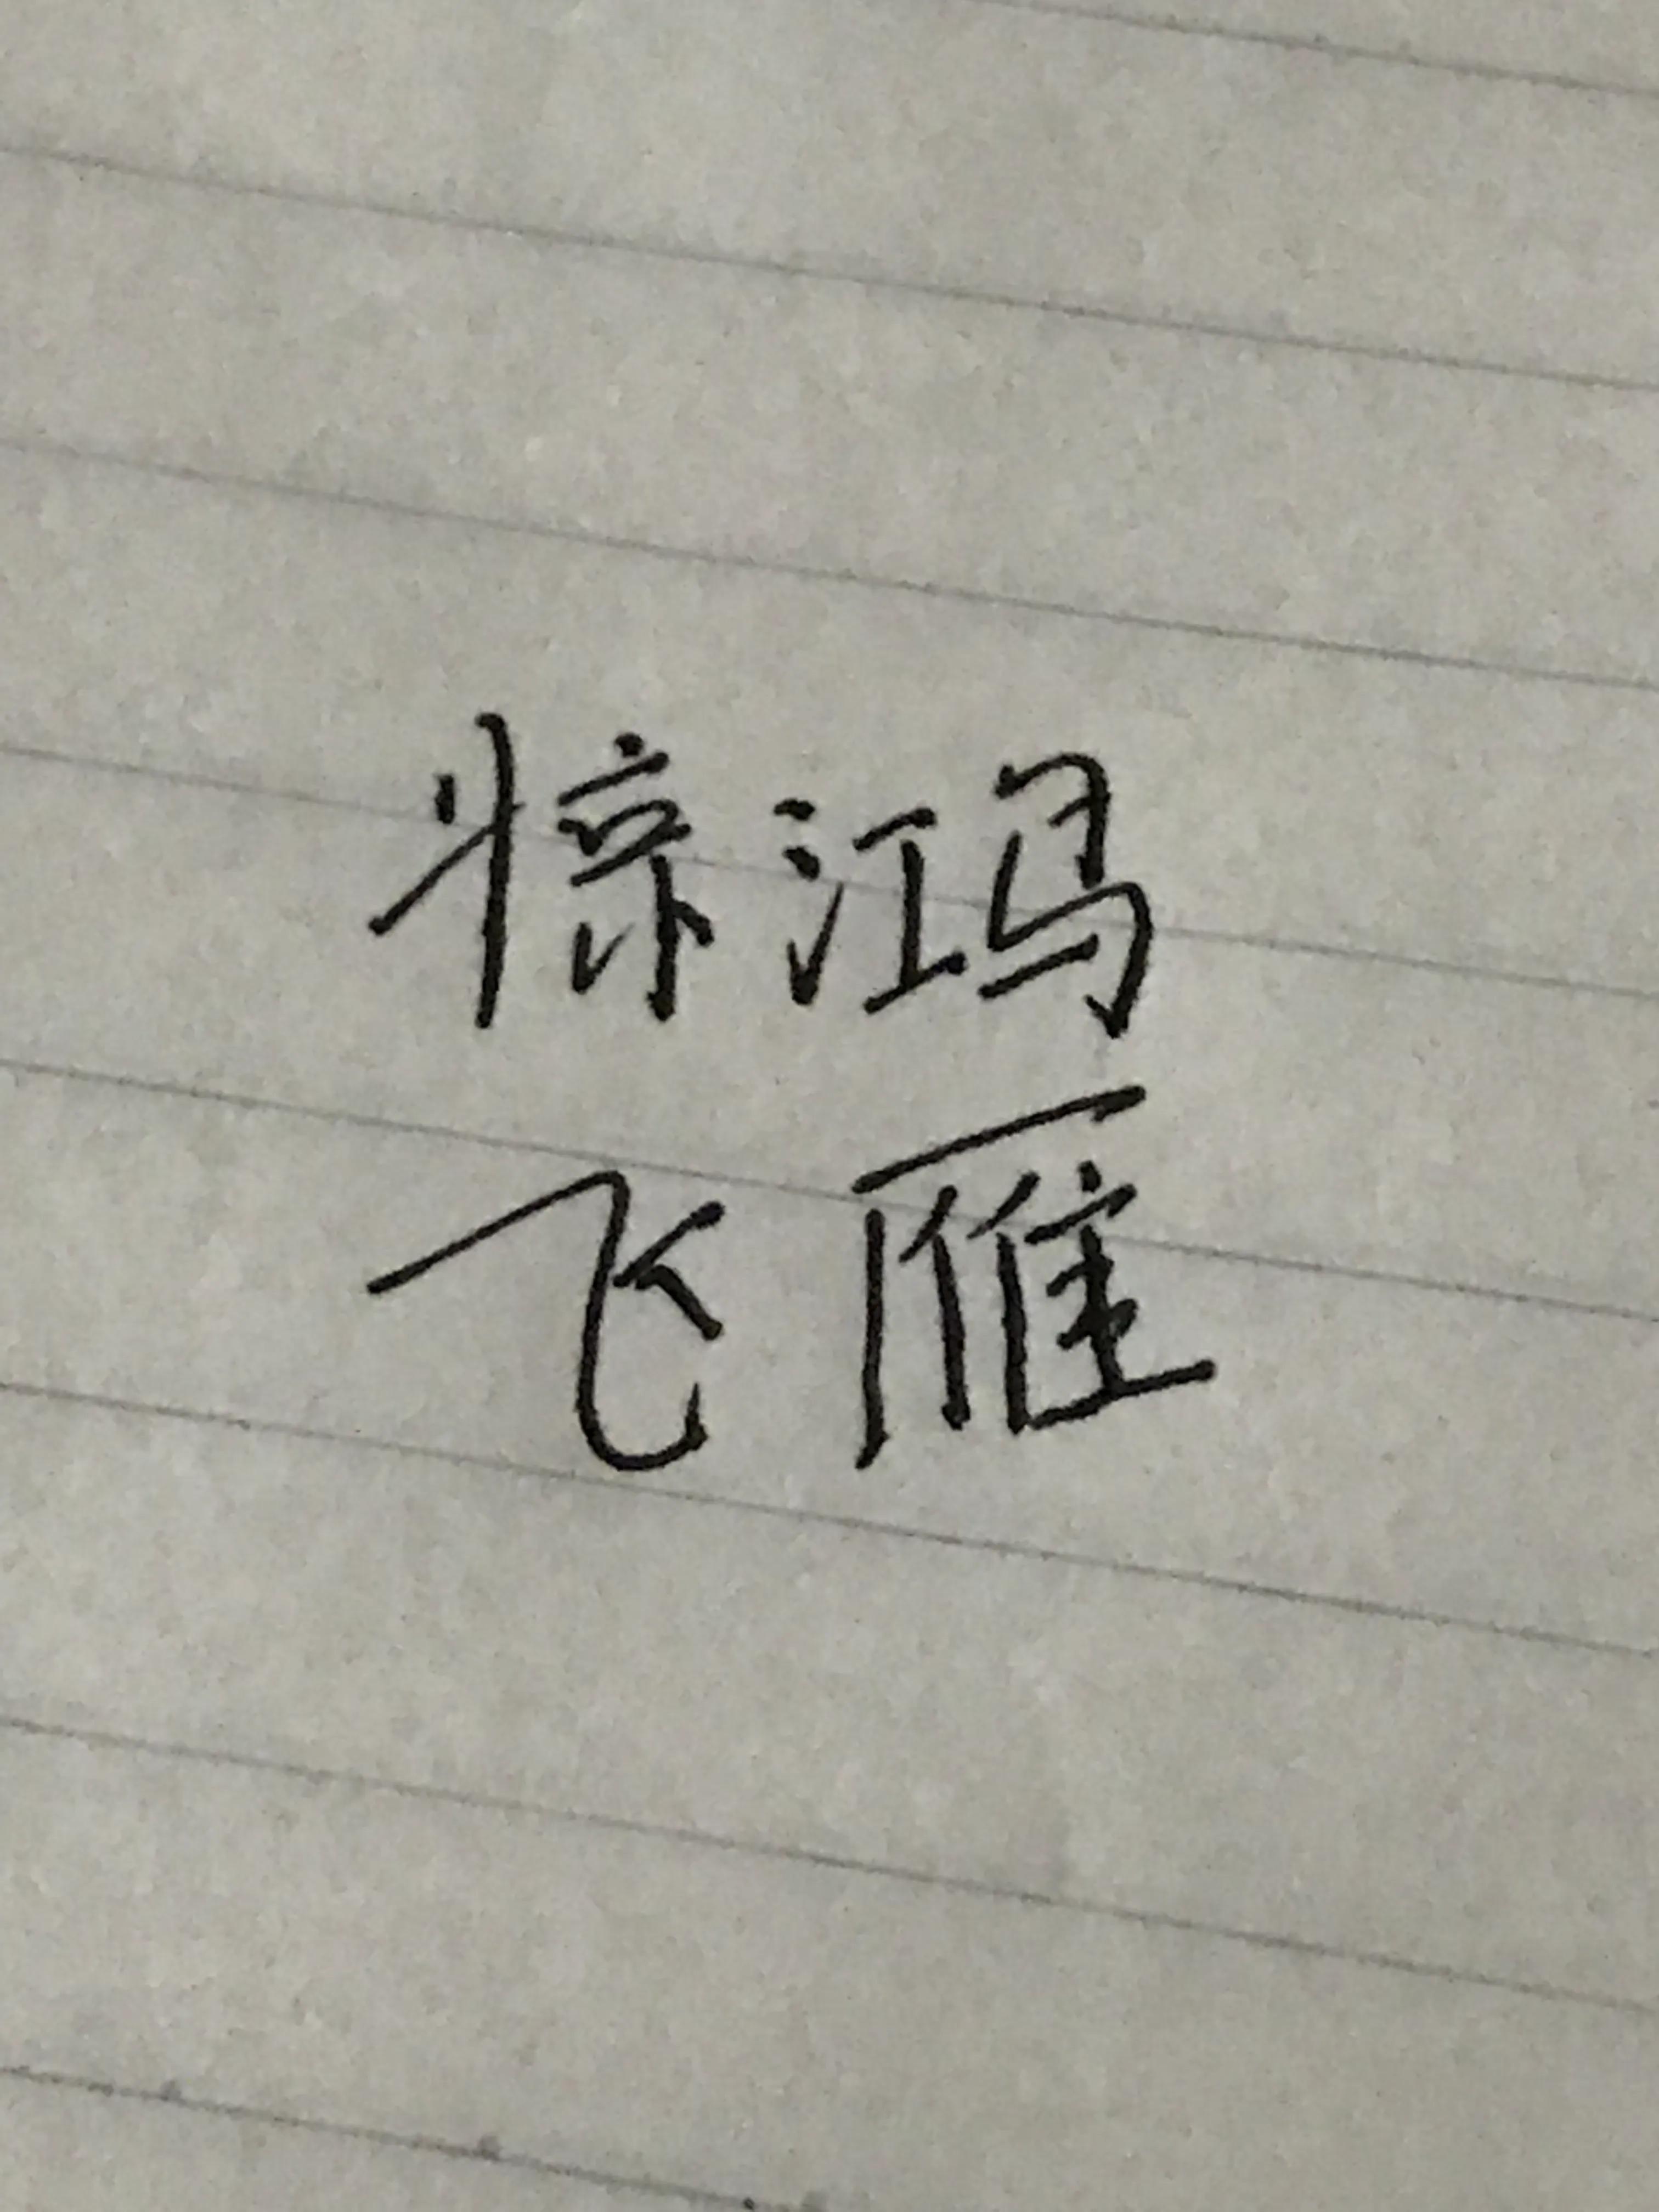 惊鸿
飞雁